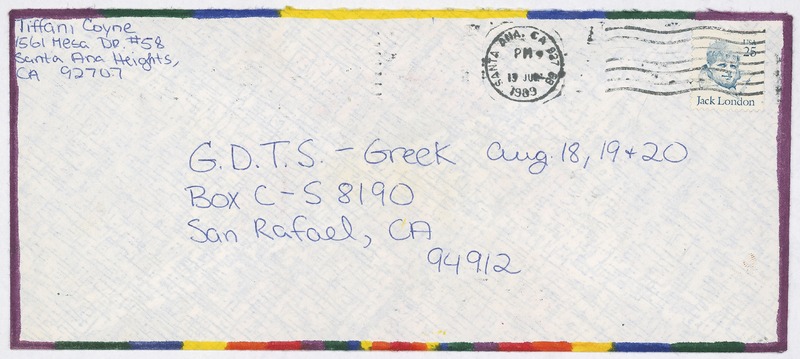 Tiffani Coyne
1561 Mesa Dr. #58
Santa Ana Heights,
CA 92707
SANTA ANA, CA 927
PM
19 JUN
1989
USA
25
Jack London
G.D.T.S. - Greek Aug. 18, 19 + 20
Box C-S 8190
San Rafael, CA
94912